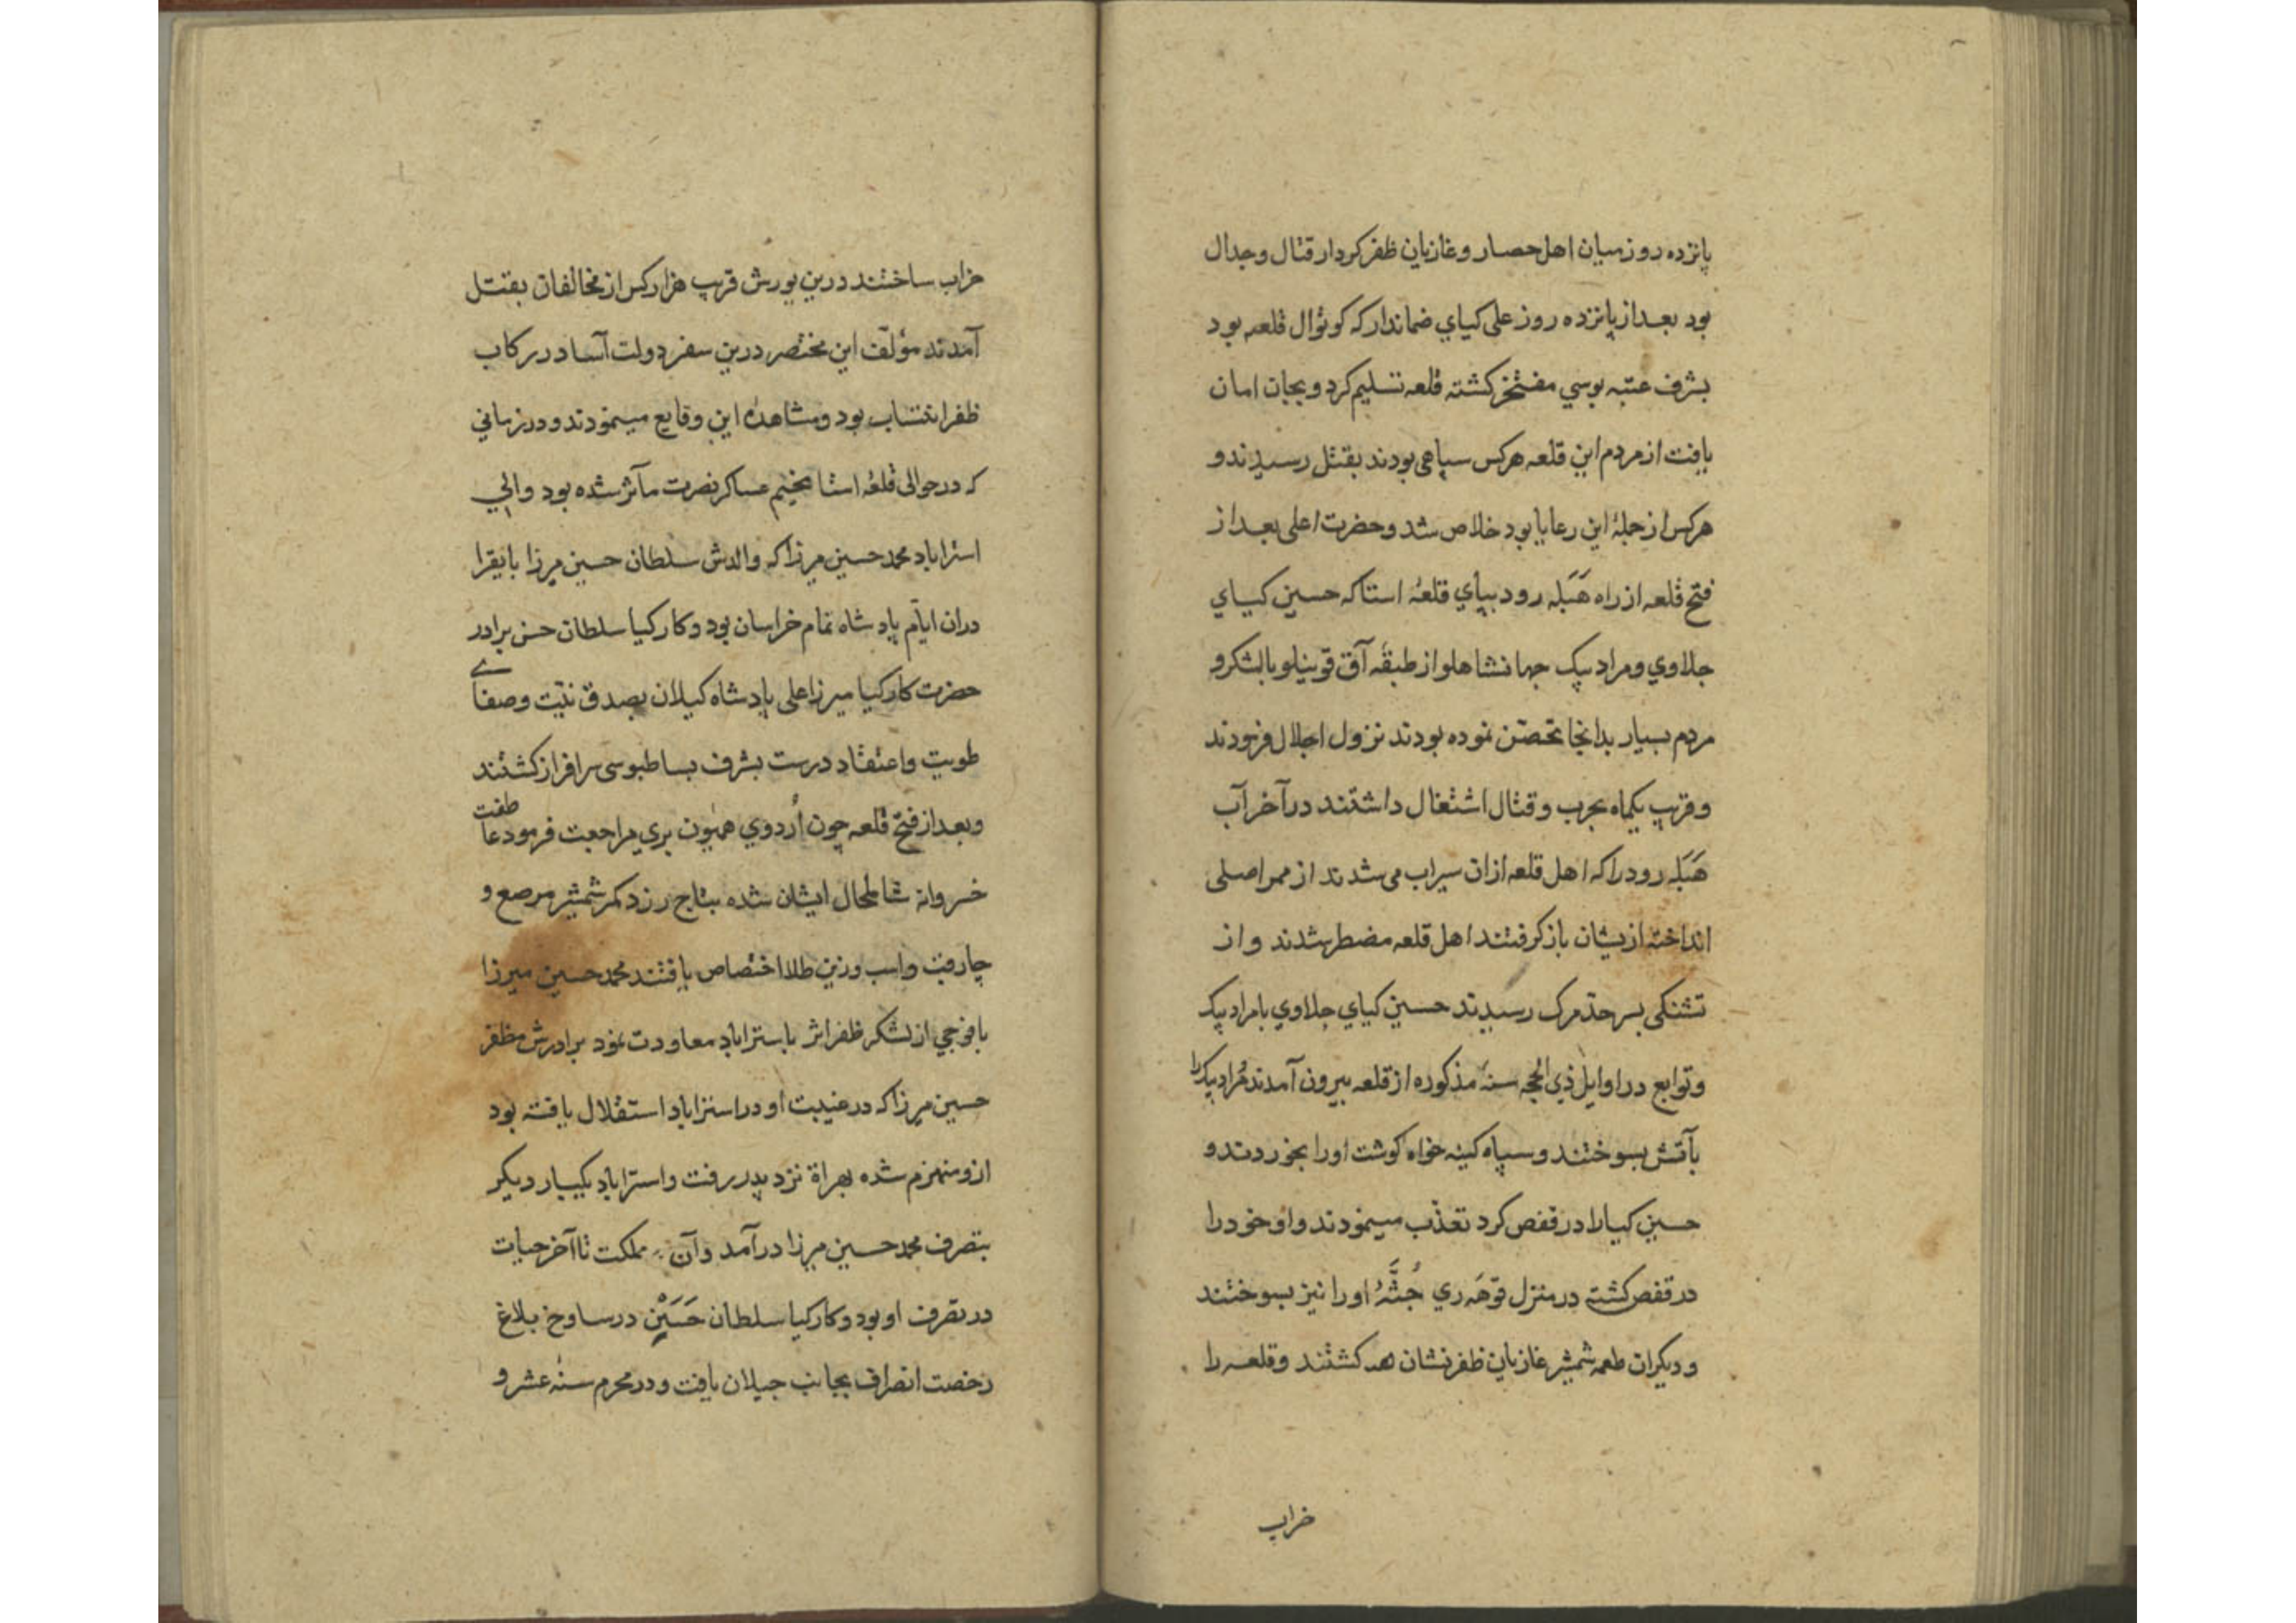 پانزده روز میان اهل حصار و غازیان ظفر کردار قتال و جدال
بود بعد از پانزده روز علی کیاي ضماندار که کوتوال قلعه بود
بشرف عتبه بوسي مفتخر کشته قلعه تسلیم کرد و بجان امان
یافت از مردم این قلعه هرکس سپاهی بودند بقتل رسیدند و
هرکس از جملهٔ این رعایا بود خلاص شد و حضرت اعلی بعد از
فتح قلعه از راه هَبَله رود بپاي قلعهٔ استا که حسین کیاي
جلاوي و مراد بیک جهانشاهلو از طبقهٔ آق قوینلو با لشکر و
مردم بسیار بدانجا تحصّن نموده بودند نزول اجلال فرمودند
و قریب یکماه بحرب و قتال اشتغال داشتند در آخر آب
هَبَله رود را که اهل قلعه از ان سیراب می شدند از ممر اصلی
انداخته ازیشان باز کرفتند اهل قلعه مضطر شدند و از
تشنکی بسرحد مرک رسیدند حسین کیاي جلاوي با مراد بیک
و توابع در اوایل ذي الحجه سنهٔ مذکوره از قلعه بیرون آمدند مُراد بیک را
بآتش بسوختند و سپاه کینه خواه کوشت اورا بخوردند و
حسین کیا را در قفص کرد تعذّب مینمودند و او خود را
در قفص کشت در منزل قوهَه ري جُثَّهٔ اورا نیز بسوختند
و دیکران طعمه شمشیر غازیان ظفر نشان هم کشتند و قلعه را
خراب
خراب ساختند درین یورش قریب هزار کس از مخالفان بقتل
آمدند مؤلّف این مختصر درین سفر دولت آسا در رکاب
ظفر انتساب بود و مشاهدهٔ این وقایع مینمودند و در زماني
که در حوالی قلعهٔ استا مخیم عساکر نصرت مآثر شده بود والي
استراباد محمد حسین میرزا که والدش سلطان حسین میرزا بایقرا
دران ایّام پادشاه تمام خراسان بود و کارکیا سلطان حسن برادر
حضرت کارکیا میرزا علی پادشاه کیلان بصدق نیّت و صفاے
طویت و اعتقاد درست بشرف بساطبوسی سرافراز کشتند
و بعد از فتح قلعه چون اُردوي همیون بري مراجعت فرمود عاطفت
خسروانه شامل حال ایشان شده بتاج زر و کمر شمشیر مرصع و
چارقب و اسب و زین طلا اختصاص یافتند محمد حسین میرزا
با فوجي از لشکر ظفر اثر باستراباد معاودت نمود برادرش مظفر
حسین میرزا که در غیبت او در استراباد استقلال یافته بود
ازو منهزم شده بهراة نزد پدر رفت و استراباد یکبار دیکر
بتصرف محمد حسین میرزا در آمد و آن مملکت تا آخر حیات
در تصرف او بود و کارکیا سلطان حَسَیْن در ساوخ بلاغ
رخصت انصراف بجانب جیلان یافت و در محرم سنهٔ عشر و